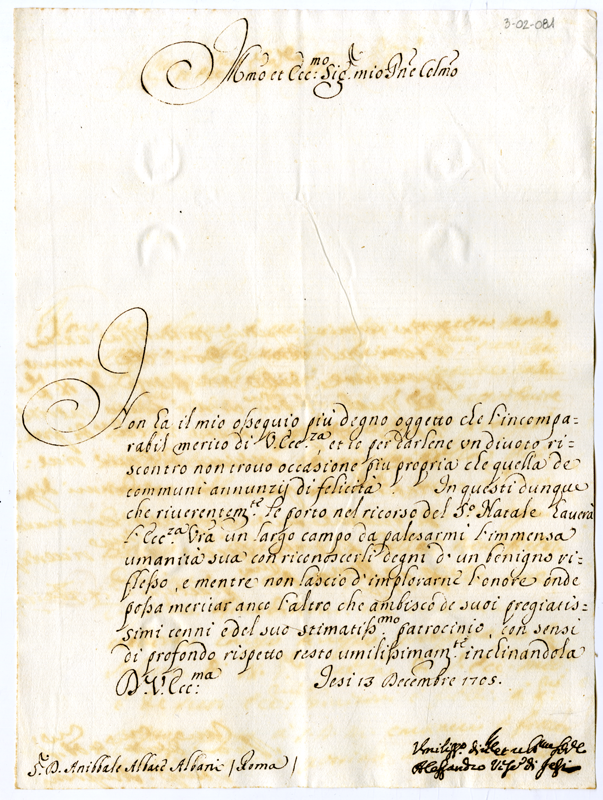 3-02-081
Ill.mo et Ecc.mo Sig.r mio P.rne Col.mo
Non ha il mio ossequio più degno oggetto che l'incompa=
rabil merito di V. Ecc.za, et io per darlene un divoto ri=
scontro non trovo occasione più propria che quella de
communi annunzij di felicità. In questi dunque
che riverentem.te le porto nel ricorso del S.o Natale haverà
l'Ecc.za V.ra un largo campo da palesarmi l'immensa
umanità sua con riconoscerli degni d'un benigno ri=
flesso, e mentre non lascio d'implorarne l'onore onde
possa meritar anco l'altro che ambisco de suoi pregiatis=
simi cenni e del suo stimatiss.mo patrocinio, con sensi
di profondo rispetto resto umilissimam.te inclinandola
D. V. Ecc.ma Jesi 13 Decembre 1705.
S.r D. Anibbale Albani (Roma)
Umiliss.o
Alessandro Vesc.o di Jesi